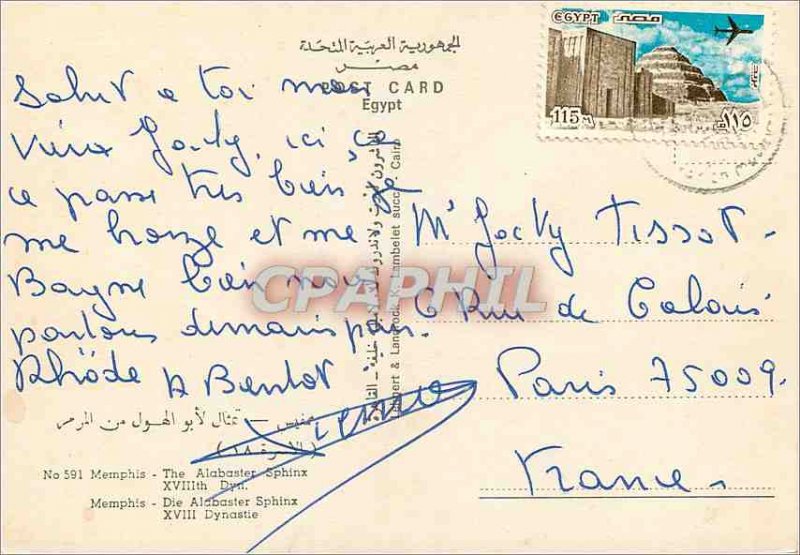 الجمهورية العربية المتحدة
مصر
POST CARD
Egypt
EGYPT مصر
115 M ١١٥
Salut a toi mon
vieux Jacky, ici ça
ce passe très bien je
me bronze et me
Baigne bien nous
partons demain pour
Rhôde A Bientot
Mr Jacky Tissot -
6 Rue de Calais
Paris 75009.
France -
CPAPHIL
Lehnert & Landrock, K. Lambelet succ. - Cairo
ممفيس — تمثال لأبو الهول من المرمر
(الأسرة ١٨)
No 591 Memphis - The Alabaster Sphinx
XVIIIth Dyn.
Memphis - Die Alabaster Sphinx
XVIII Dynastie